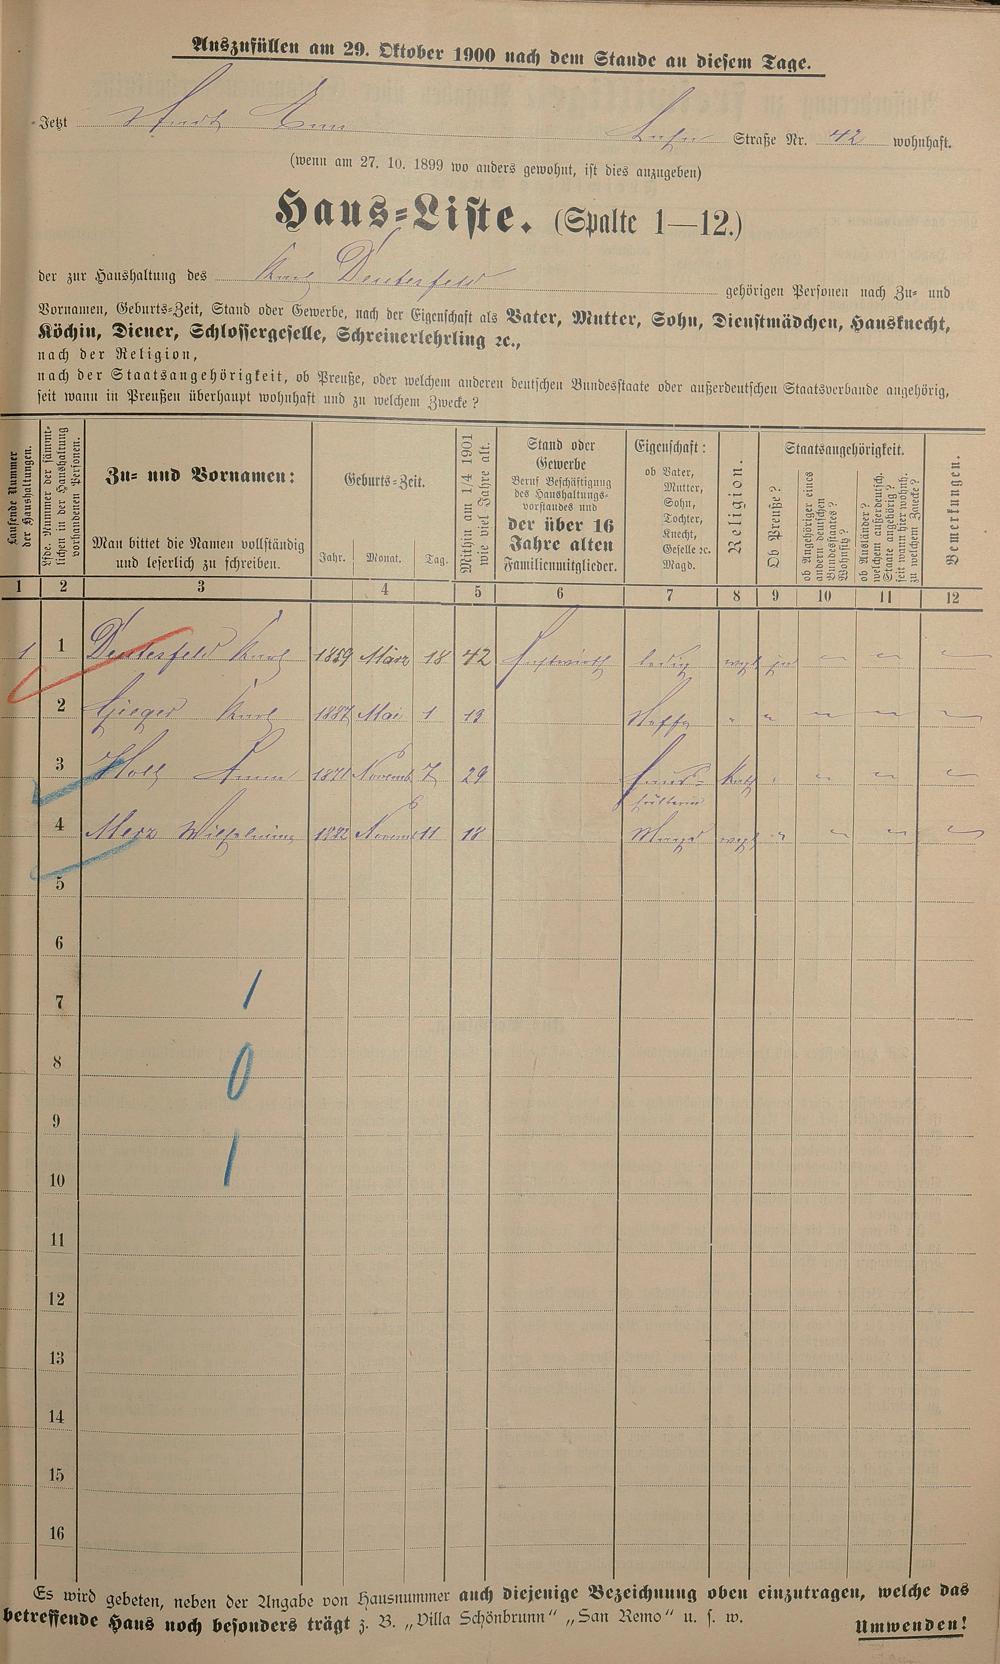 Auszufüllen am 29. Oktober 1900 nach dem Stande an diesem Tage.
Jetzt Stadt Ems Straße Nr. 42 wohnhaft.
(wenn am 27. 10. 1899 wo anders gewohnt, ist dies anzugeben)
Haus-Liste. (Spalte 1—12.)
der zur Haushaltung des Karl Deuterfeld gehörigen Personen nach Zu- und
Vornamen, Geburts-Zeit, Stand oder Gewerbe, nach der Eigenschaft als Vater, Mutter, Sohn, Dienstmädchen, Hausknecht,
Köchin, Diener, Schlossergeselle, Schreinerlehrling ꝛc.,
nach der Religion,
nach der Staatsangehörigkeit, ob Preuße, oder welchem anderen deutschen Bundesstaate oder außerdeutschen Staatsverbande angehörig,
seit wann in Preußen überhaupt wohnhaft und zu welchem Zwecke?
Laufende Nummer
der Haushaltungen.
Lfde. Nummer der sämmt-
lichen in der Haushaltung
vorhandenen Personen.
Zu- und Vornamen:
Man bittet die Namen vollständig
und leserlich zu schreiben.
Geburts-Zeit.
Jahr. Monat. Tag.
Mithin am 1/4 1901
wie viel Jahre alt.
Stand oder
Gewerbe
Beruf Beschäftigung
des Haushaltungs-
vorstandes und
der über 16
Jahre alten
Familienmitglieder.
Eigenschaft:
ob Vater,
Mutter,
Sohn,
Tochter,
Knecht,
Geselle ꝛc.
Magd.
Religion.
Staatsangehörigkeit.
Ob Preuße?
ob Angehöriger eines
andern deutschen
Bundesstaates?
Wohnsitz?
ob Ausländer?
welchem außerdeutsch.
Staate angehörig?
seit wann hier wohnh.
zu welchem Zwecke?
Bemerkungen.
1 2 3 4 5 6 7 8 9 10 11 12
1 1 Deuterfeld Karl 1859 März 18 42 Gastwirth ledig evgl ja — — —
2 Gieger Karl 1887 Mai 1 13 Neffe " " — — —
3 Holl Anna 1871 Novemb 7 29 Haus- Kath " — — —
hälterin
4 Merz Wilhelmine 1882 Novemb 11 18 Magd evgl " — — —
5
6
7
1
8
0
9
1
10
11
12
13
14
15
16
Es wird gebeten, neben der Angabe von Hausnummer auch diejenige Bezeichnung oben einzutragen, welche das
betreffende Haus noch besonders trägt z. B. „Villa Schönbrunn“ „San Remo“ u. s. w.
Umwenden!